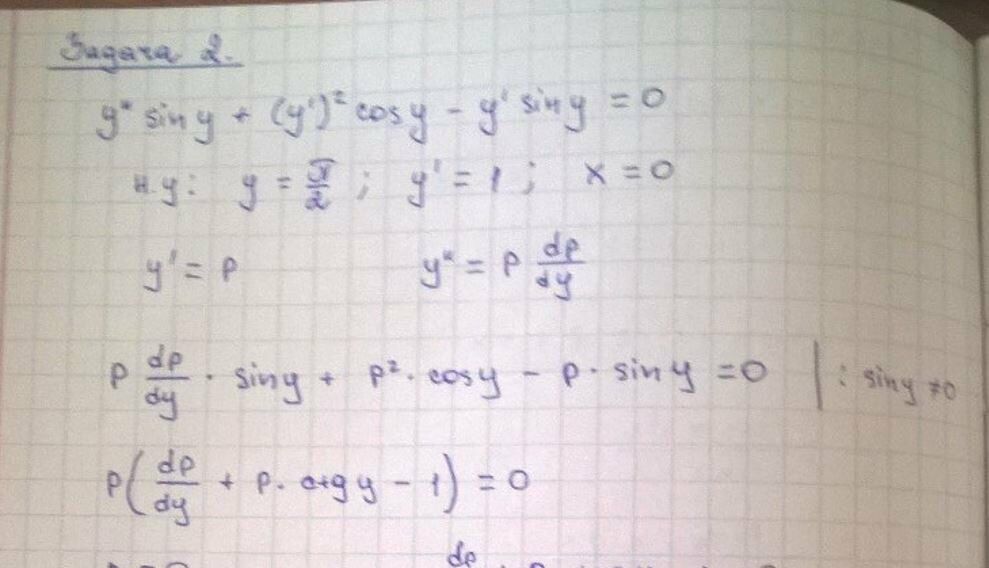 Задача 2.
y'' sin y + (y')² cos y - y' sin y = 0
н.у: y = π/2 ; y' = 1 ; x = 0
y' = p y'' = p dp/dy
p dp/dy · sin y + p² · cos y - p · sin y = 0 | : sin y ≠ 0
p(dp/dy + p · ctg y - 1) = 0
dp